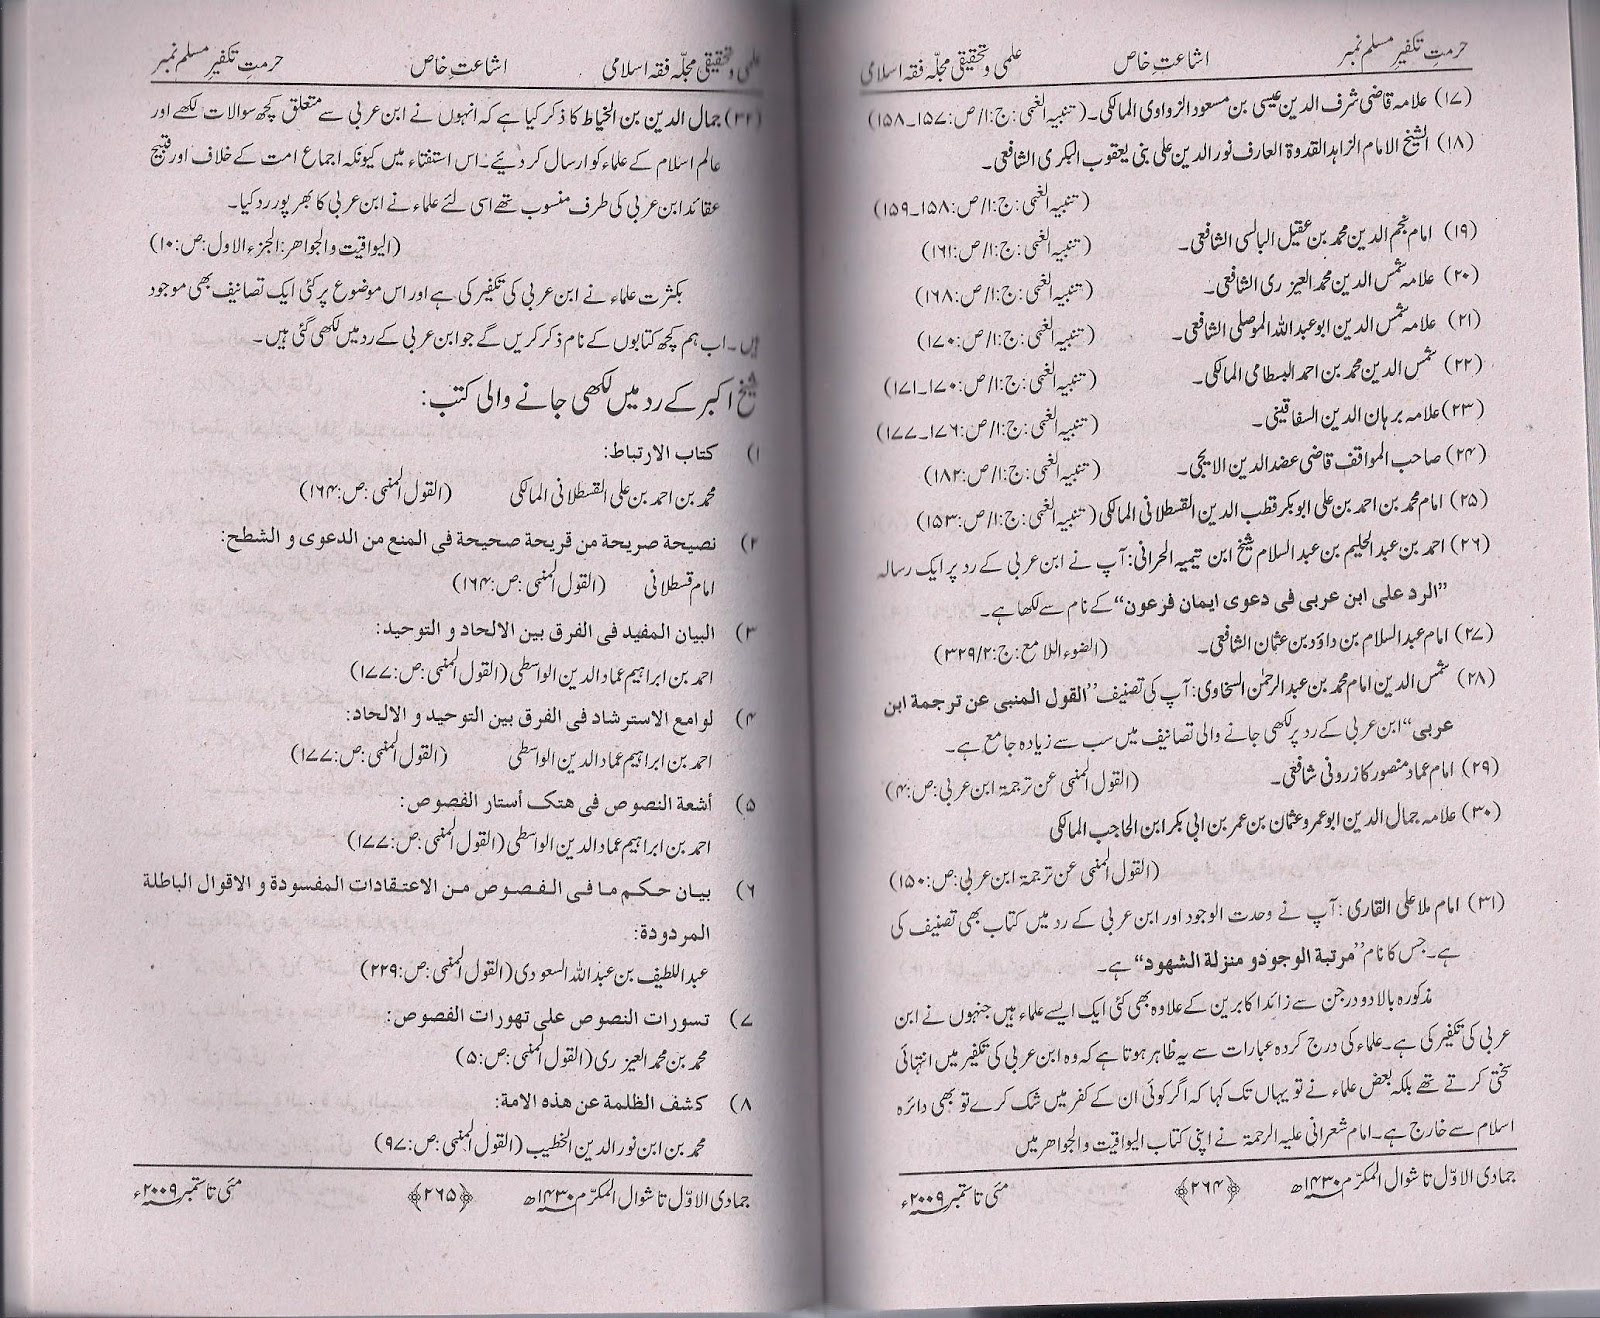 علمی و تحقیقی مجلّہ فقہ اسلامی اشاعتِ خاص حرمتِ تکفیرِ مسلم نمبر
(۱۷) علامہ قاضی شرف الدین عیسیٰ بن مسعود الزواوی المالکی۔ (تنبیہ الغمی: ج:۱/ص:۱۵۷۔۱۵۸)
(۱۸) الشیخ الامام الزاہد القدوۃ العارف نورالدین علی بنی یعقوب البکری الشافعی۔
(تنبیہ الغمی: ج:۱/ص:۱۵۸۔۱۵۹)
(۱۹) امام نجم الدین محمد بن عقیل البالسی الشافعی۔ (تنبیہ الغمی: ج:۱/ص:۱۶۱)
(۲۰) علامہ شمس الدین محمد العیزری الشافعی۔ (تنبیہ الغمی: ج:۱/ص:۱۶۸)
(۲۱) علامہ شمس الدین ابوعبداللہ الموصلی الشافعی۔ (تنبیہ الغمی: ج:۱/ص:۱۷۰)
(۲۲) شمس الدین محمد بن احمد البسطامی المالکی۔ (تنبیہ الغمی: ج:۱/ص:۱۷۰۔۱۷۱)
(۲۳) علامہ برہان الدین السفاقینی۔ (تنبیہ الغمی: ج:۱/ص:۱۷۶۔۱۷۷)
(۲۴) صاحب المواقف قاضی عضدالدین الایجی۔ (تنبیہ الغمی: ج:۱/ص:۱۸۲)
(۲۵) امام محمد بن احمد بن علی ابوبکر قطب الدین القسطلانی المالکی (تنبیہ الغمی: ج:۱/ص:۱۵۳)
(۲۶) احمد بن عبدالحلیم بن عبدالسلام شیخ ابن تیمیہ الحرانی: آپ نے ابن عربی کے رد پر ایک رسالہ
”الرد علی ابن عربی فی دعوی ایمان فرعون“ کے نام سے لکھا ہے۔
(۲۷) امام عبدالسلام بن داؤد بن عثمان الشافعی۔ (الضوء اللامع: ج:۳۲۹/۲)
(۲۸) شمس الدین امام محمد بن عبدالرحمٰن السخاوی: آپ کی تصنیف ”القول المنبی عن ترجمة ابن
عربی“ ابن عربی کے رد پر لکھی جانے والی تصانیف میں سب سے زیادہ جامع ہے۔
(۲۹) امام عماد منصور کازرونی شافعی۔ (القول المنبی عن ترجمۃ ابن عربی: ص:۴)
(۳۰) علامہ جمال الدین ابوعمرو عثمان بن عمر بن ابی بکر ابن الحاجب المالکی
(القول المنبی عن ترجمۃ ابن عربی: ص:۱۵۰)
(۳۱) امام ملا علی القاری: آپ نے وحدت الوجود اور ابن عربی کے رد میں کتاب بھی تصنیف کی
ہے۔ جس کا نام ”مرتبة الوجود و منزلة الشهود“ ہے۔
مذکورہ بالا دو درجن سے زائد اکابرین کے علاوہ بھی کئی ایک ایسے علماء ہیں جنہوں نے ابن
عربی کی تکفیر کی ہے۔ علماء کی درج کردہ عبارات سے یہ ظاہر ہوتا ہے کہ وہ ابن عربی کی تکفیر میں انتہائی
سختی کرتے تھے بلکہ بعض علماء نے تو یہاں تک کہا کہ اگر کوئی ان کے کفر میں شک کرے تو بھی دائرہ
اسلام سے خارج ہے۔ امام شعرانی علیہ الرحمۃ نے اپنی کتاب الیواقیت والجواھر میں
جمادی الاوّل تا شوال المکرّم ۱۴۳۰ھ ﴿۲۶۴﴾ مئی تا ستمبر ۲۰۰۹ء
علمی و تحقیقی مجلّہ فقہ اسلامی اشاعتِ خاص حرمتِ تکفیرِ مسلم نمبر
(۳۲) جمال الدین بن الخیاط کا ذکر کیا ہے کہ انہوں نے ابن عربی سے متعلق کچھ سوالات لکھے اور
عالم اسلام کے علماء کو ارسال کر دئیے۔ اس استفتاء میں کیونکہ اجماع امت کے خلاف اور قبیح
عقائد ابن عربی کی طرف منسوب تھے اسی لئے علماء نے ابن عربی کا بھرپور رد کیا۔
(الیواقیت والجواھر: الجزء الاول: ص:۱۰)
بکثرت علماء نے ابن عربی کی تکفیر کی ہے اور اس موضوع پر کئی ایک تصانیف بھی موجود
ہیں۔ اب ہم کچھ کتابوں کے نام ذکر کریں گے جو ابن عربی کے رد میں لکھی گئی ہیں۔
شیخ اکبر کے رد میں لکھی جانے والی کتب:
۱) کتاب الارتباط:
محمد بن احمد بن علی القسطلانی المالکی (القول المنبی: ص:۱۶۴)
۲) نصیحة صریحة من قریحة صحیحة فی المنع من الدعوی و الشطح:
امام قسطلانی (القول المنبی: ص:۱۶۴)
۳) البیان المفید فی الفرق بین الالحاد و التوحید:
احمد بن ابراہیم عماد الدین الواسطی (القول المنبی: ص:۱۷۷)
۴) لوامع الاسترشاد فی الفرق بین التوحید و الالحاد:
احمد بن ابراہیم عماد الدین الواسطی (القول المنبی: ص:۱۷۷)
۵) أشعة النصوص فی هتک أستار الفصوص:
احمد بن ابراہیم عماد الدین الواسطی (القول المنبی: ص:۱۷۷)
۶) بیان حکم ما فی الفصوص من الاعتقادات المفسودة و الاقوال الباطلة
المردودة:
عبداللطیف بن عبداللہ السعودی (القول المنبی: ص:۲۲۹)
۷) تسورات النصوص علی تهورات الفصوص:
محمد بن محمد العیزری (القول المنبی: ص:۵)
۸) کشف الظلمة عن هذه الامة:
محمد بن ابن نورالدین الخطیب (القول المنبی: ص:۹۷)
جمادی الاوّل تا شوال المکرّم ۱۴۳۰ھ ﴿۲۶۵﴾ مئی تا ستمبر ۲۰۰۹ء